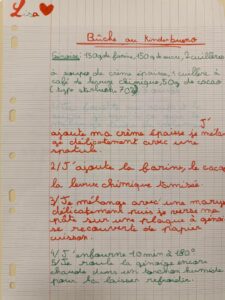 Lisa
Bûche au Kinder bueno
Génoise: 150g de farine, 150g de sucre, 2 cuillères
à soupes de crème épaisse, 1 cuillère à
café de levure chimique, 50g de cacao
70%
J'
ajoute ma crème épaisse je mélan
gé délicatement avec une
spatule
2/ J'ajoute la farine, le cacao
la levure chimique tamisée.
3/ Je mélange avec une maryse
délicatement puis je verse ma
pâte sur une plaque à géno
se recouverte de papier
cuisson.
4/ J'enfourne 10 min à 180°
5/ Je roule la génoise encore
chaude dans un torchon humide
pour la laisser refroidir.